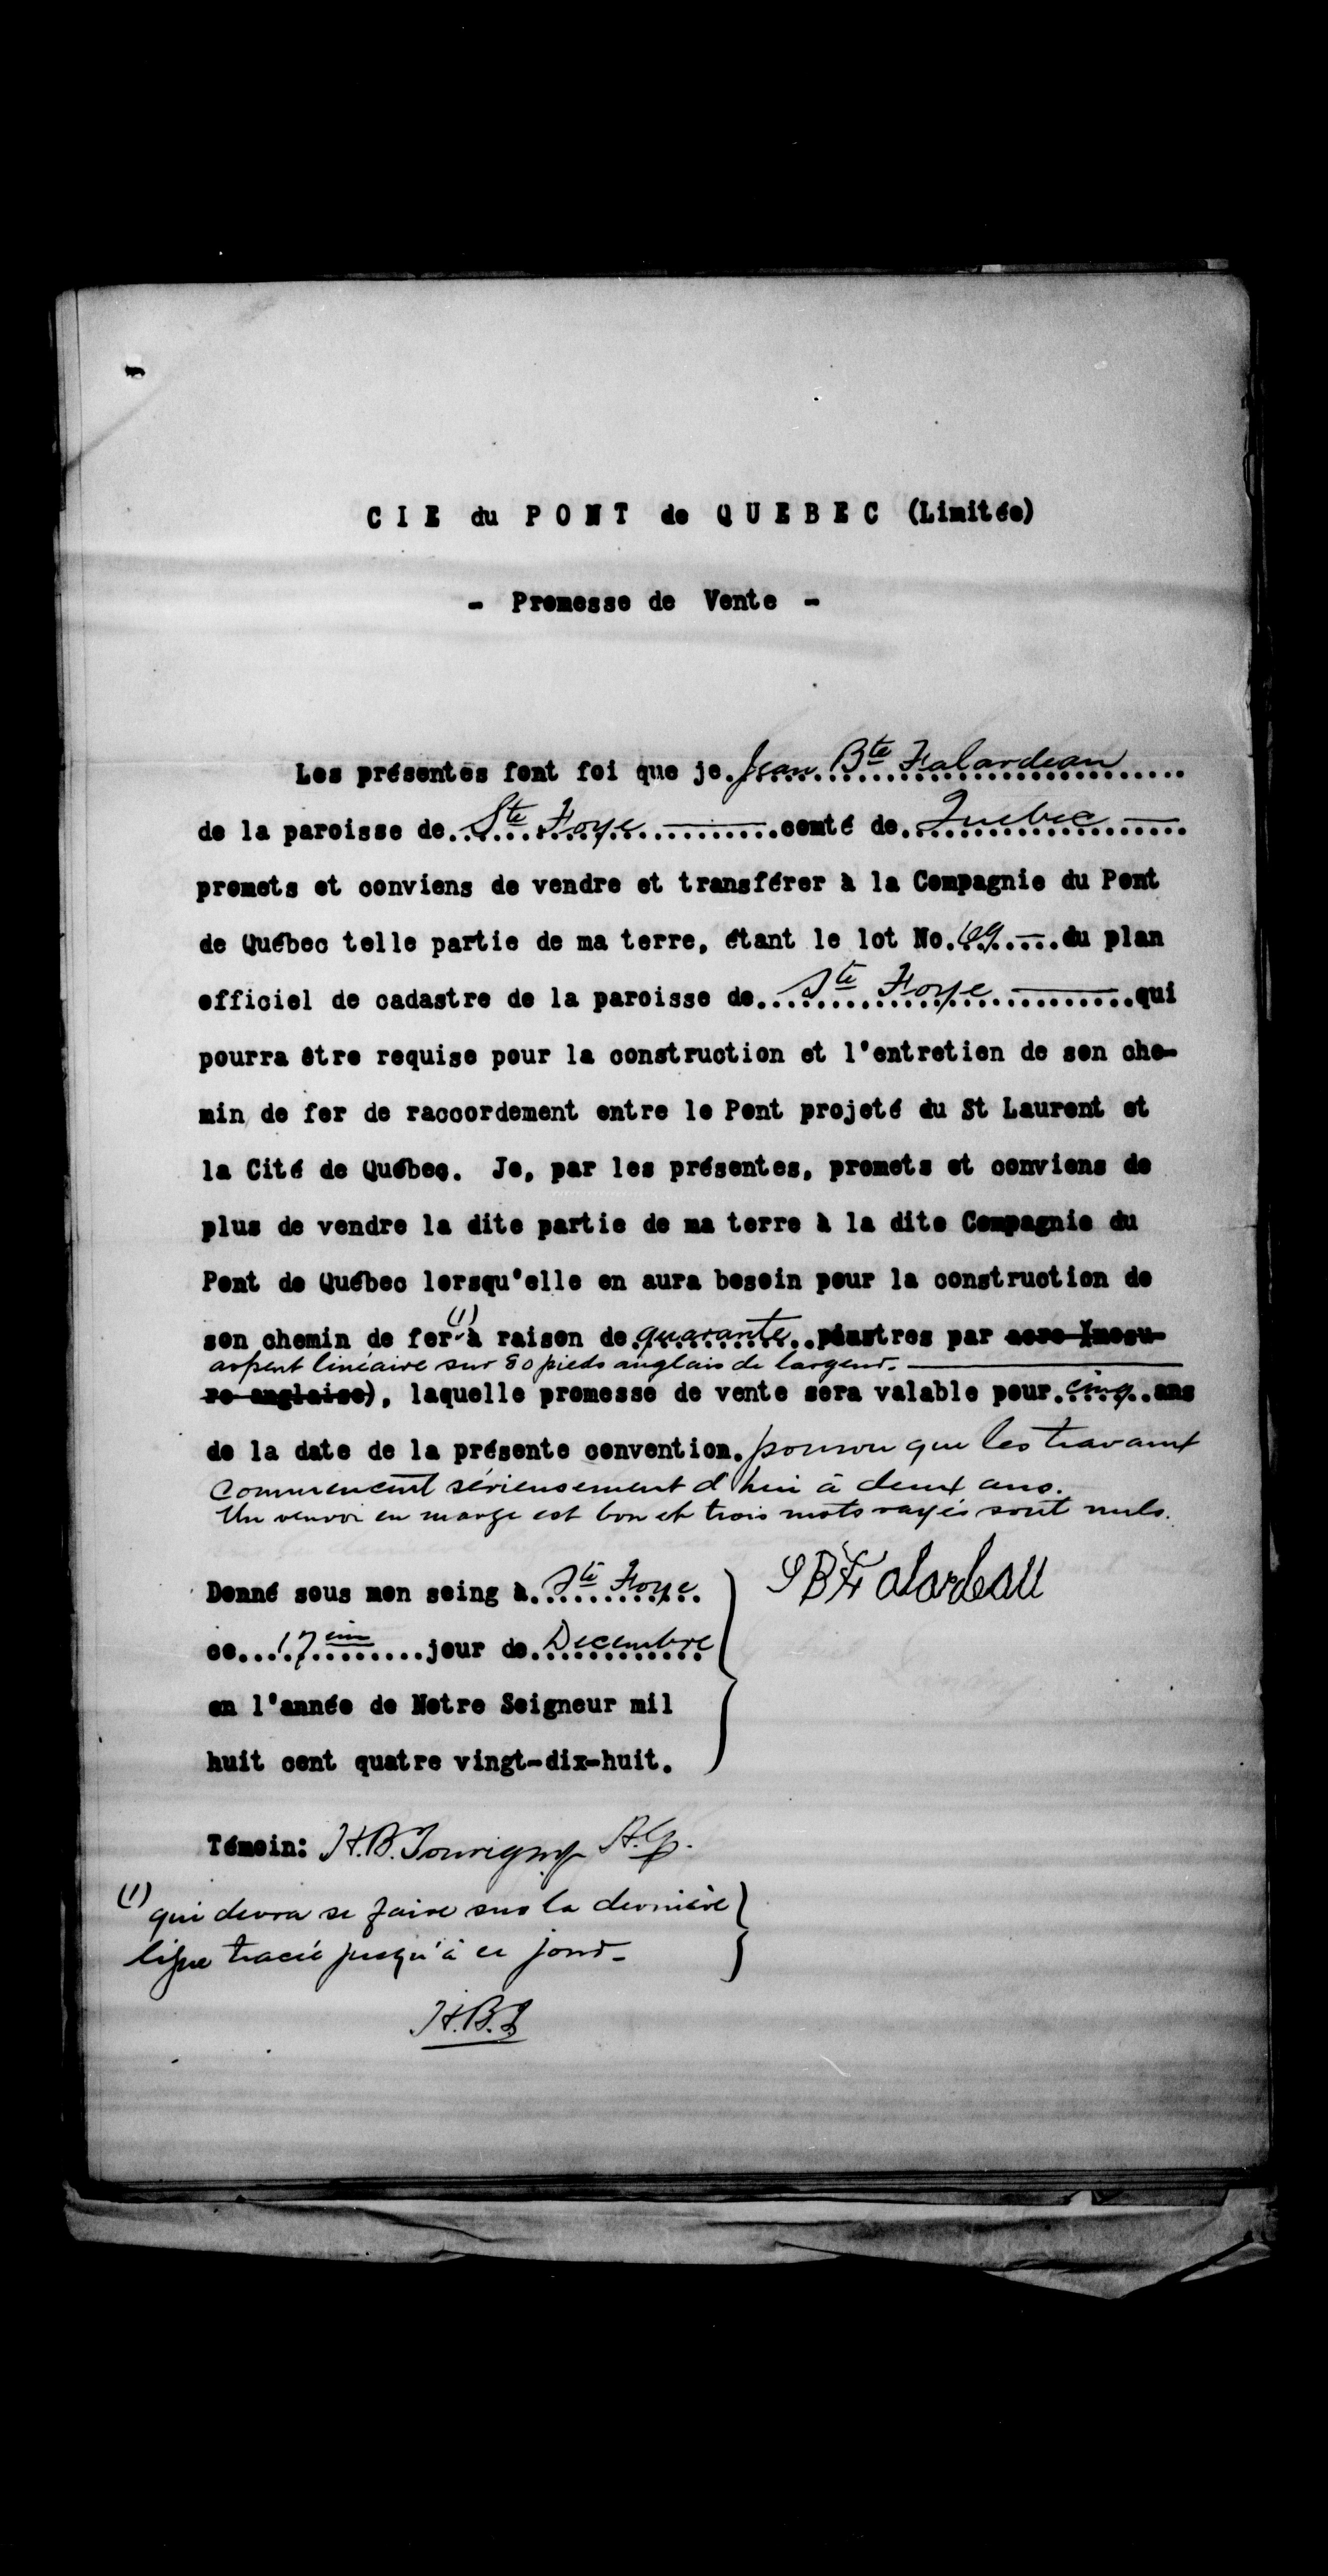 CIE du PONT de QUEBEC (Limitée)
- Promesse de Vente -
Les présentes font foi que je Jean Bte Falardeau
de la paroisse de Ste Foye comté de Quebec
promets et conviens de vendre et transférer à la Compagnie du Pont
de Québec telle partie de ma terre, étant le lot No. 69 du plan
officiel de cadastre de la paroisse de Ste Foye qui
pourra être requise pour la construction et l'entretien de son che-
min de fer de raccordement entre le Pont projeté du St Laurent et
la Cité de Québec. Je, par les présentes, promets et conviens de
plus de vendre la dite partie de ma terre à la dite Compagnie du
Pont de Québec lorsqu'elle en aura besoin pour la construction de
son chemin de fer (1) à raison de quarante piastres par acre (mesu-
arpent linéaire sur 80 pieds anglais de largeur.
re anglaise), laquelle promesse de vente sera valable pour cinq ans
de la date de la présente convention. pourvu que les travaux
commencent sérieusement d'hui à deux ans.
Un renvoi en marge est bon et trois mots rayés sont nuls.
Donné sous mon seing à Ste Foye
JB Falardeau
ce 17eme jour de Decembre
en l'année de Notre Seigneur mil
huit cent quatre vingt-dix-huit.
Témoin: H.B. Tourigny A.G.
(1) qui devra se faire sur la dernière
ligne tracée jusqu'à ce jour.
H.B.T